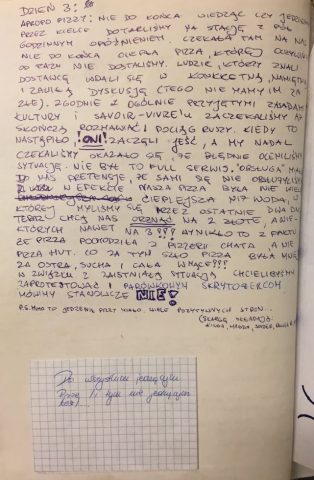 DZIEŃ 3:
APROPO PIZZY: NIE DO KOŃCA WIEDZĄC CZY JEDZIEMY
PRZEZ KIELCE DOTARLIŚMY NA STACJĘ Z PÓŁ
GODZINNYM OPÓŹNIENIEM. CZEKAŁA TAM NA NAS
NIE DO KOŃCA CIEPŁA PIZZA, KTÓREJ OCZYWIŚCIE
OD RAZU NIE DOSTALIŚMY. LUDZIE, KTÓRZY ZNALI
DOSTAWCĘ WDALI SIĘ W KONKRETNĄ, NAMIĘTNĄ
I ZAWIŁĄ DYSKUSJĘ (TEGO NIE MAMY IM ZA
ZŁE). ZGODNIE Z OGÓLNIE PRZYJĘTYMI ZASADAMI
KULTURY I SAVOIR-VIVRE'U ZACZEKALIŚMY AŻ
SKOŃCZĄ ROZMAWIAĆ I POCIĄG RUSZY. KIEDY TO
NASTĄPIŁO, ONI! ZACZĘLI JEŚĆ, A MY NADAL
CZEKALIŚMY OKAZAŁO SIĘ, ŻE BŁĘDNIE OCENILIŚMY
SYTUACJĘ. NIE BYŁ TO FULL SERWIS. OBSŁUGA MIAŁA
DO NAS PRETENSJE, ŻE SAMI SIĘ NIE OBSŁUŻYLIŚMY
W EFEKCIE NASZA PIZZA BYŁA NIE WIELE
CIEPLEJSZA NIŻ WODA, W
KTÓREJ MYLIŚMY SIĘ PRZEZ OSTATNIE DWA DNI.
TERAZ CHCĄ NAS ORŻNĄĆ NA 2 ZŁOTE, A NIE-
KTÓRYCH NAWET NA 3??? WYNIKŁO TO Z FAKTU
ŻE PIZZA POCHODZIŁA Z PIZZERII CHATA, A NIE
PIZZA HUT. CO ZA TYM SZŁO PIZZA BYŁA MNIEJ
ZA OSTRA, SUCHA I CAŁA W
W ZWIĄZKU Z ZAISTNIAŁĄ SYTUACJĄ CHCIELIBYŚMY
ZAPROTESTOWAĆ I PARÓWKOWYM SKRYTOŻERCOM
MÓWIMY STANOWCZE NIE!
P.S. MIMO TO JEDZENIE PIZZY MIAŁO WIELE POZYTYWNYCH STRON...
KINGA, MAGDA,
Do wszystkich jedzących
Pizzę (i tych nie jedzących
też)...